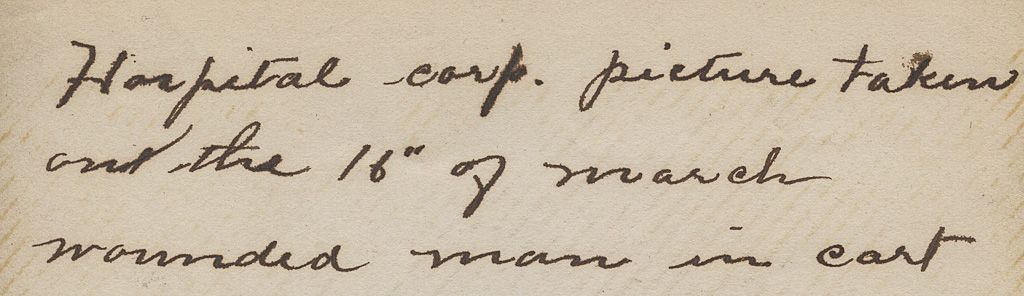 Hospital corp. picture taken
out the 16" of march
wounded man in cart